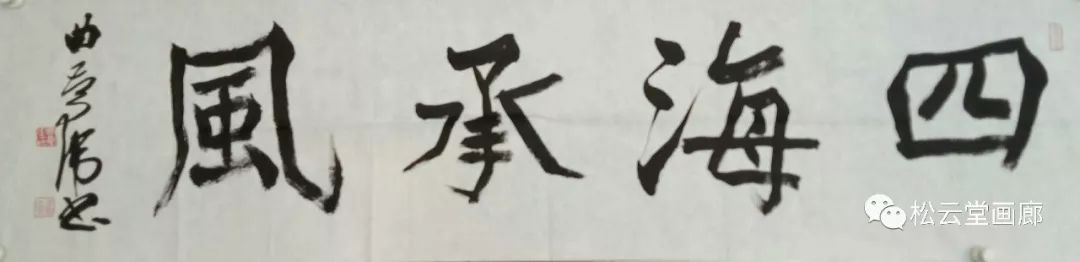 四海承風
松云堂画廊